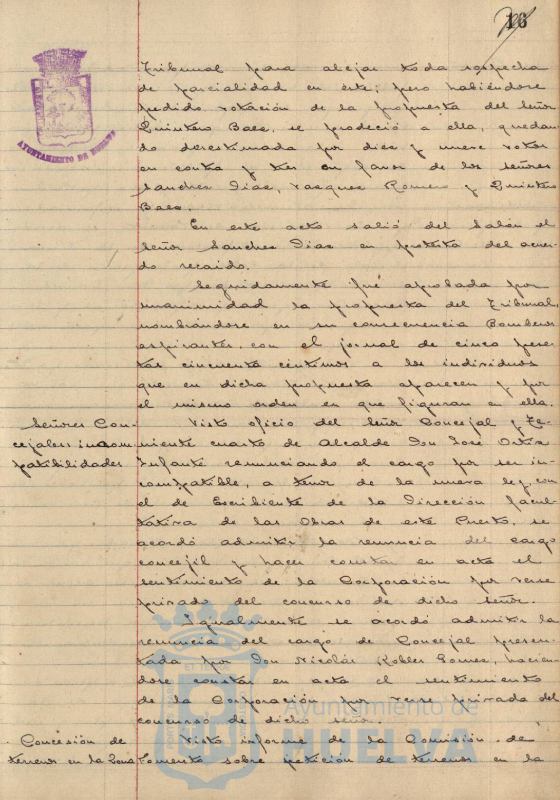 16
AYUNTAMIENTO DE HUELVA
Tribunal para alejar toda sospecha
de parcialidad en este; pero habiéndose
pedido votación de la propuesta del señor
Quintero Baez, se prodeció a ella, quedan
do desestimada por diez y nueve votos
en contra y tres en favor de los señores
Sanchez Diaz, Vazquez Romero y Quintero
Baez.
En este acto salió del Salón el
señor Sanchez Diaz en protesta del acuer-
do recaido.
Seguidamente fué aprobada por
unanimidad la propuesta del Tribunal,
nombrándose en su consecuencia Bomberos
aspirantes, con el jornal de cinco pese-
tas cincuenta centimos a los individuos
que en dicha propuesta aparecen y por
el mismo orden en que figuran en ella.
Señores Con-
cejales: incom
patibilidades
Visto oficio del señor Concejal y Te-
niente cuarto de Alcalde Don José Ortiz
Infante renunciando el cargo por ser in-
compatible, a tenor de la nueva ley, con
el de Escribiente de la Dirección facul-
tativa de las Obras de este Puerto, se
acordó admitir la renuncia del cargo
concejil y hacer constar en acta el
sentimiento de la Corporación por verse
privado del concurso de dicho señor.
Igualmente se acordó admitir la
renuncia del cargo de Concejal presen-
tada por Don Nicolás Robles Gomez, hacien
dose constar en acta el sentimiento
de la Corporación por verse privada del
concurso de dicho señor.
Concesión de
terrenos en la Zona
Visto informe de la Comisión de
Fomento sobre petición de terrenos en la
Ayuntamiento de
HUELVA